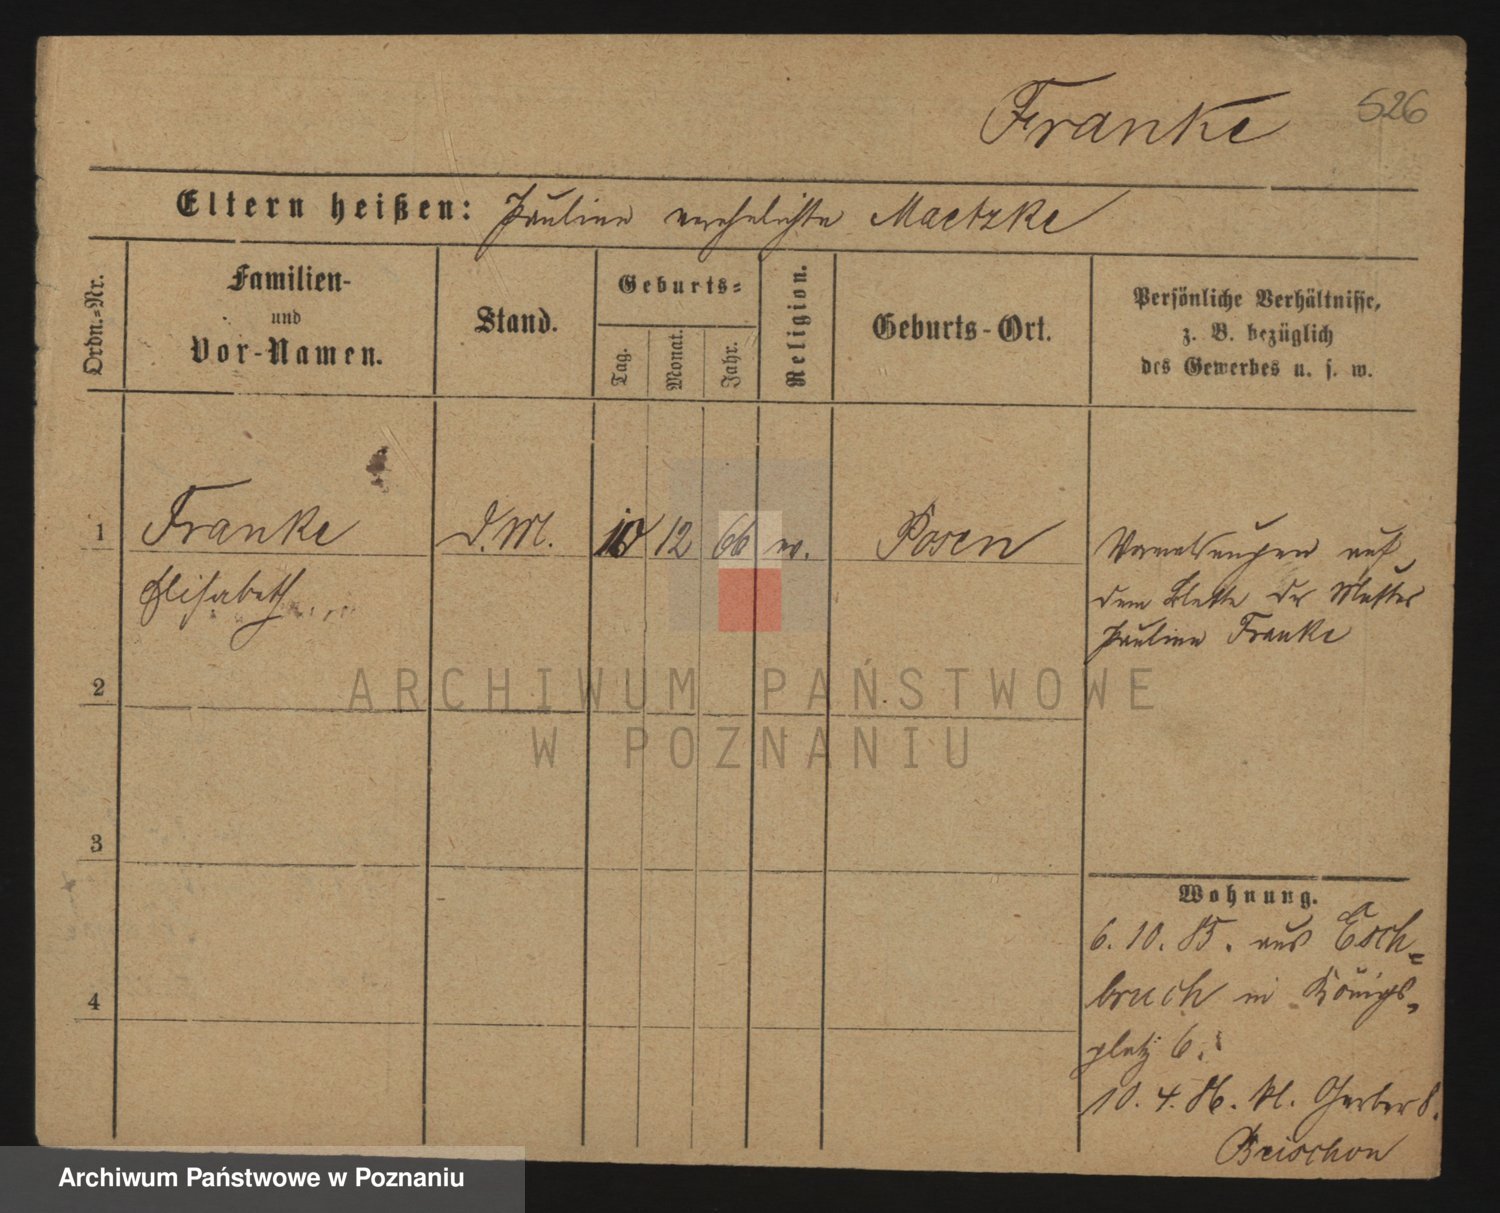 Franke
526
Eltern heißen: Pauline verehelichte Maetzke
Ordn.-Nr.
Familien-
und
Vor-Namen.
Stand.
Geburts-
Tag.
Monat.
Jahr.
Religion.
Geburts-Ort.
Persönliche Verhältnisse,
z. B. bezüglich
des Gewerbes u. s. w.
1
Franke
Elisabeth
D.M.
12
66
Posen
auf
dem Blatte der Mutter
Pauline Franke
2
3
4
Wohnung.
6. 10. 85. aus Esch-
bruch in Königs-
platz 6.
10. 4. 86. kl. Gerber 8.
ARCHIWUM PAŃSTWOWE
W POZNANIU
Archiwum Państwowe w Poznaniu